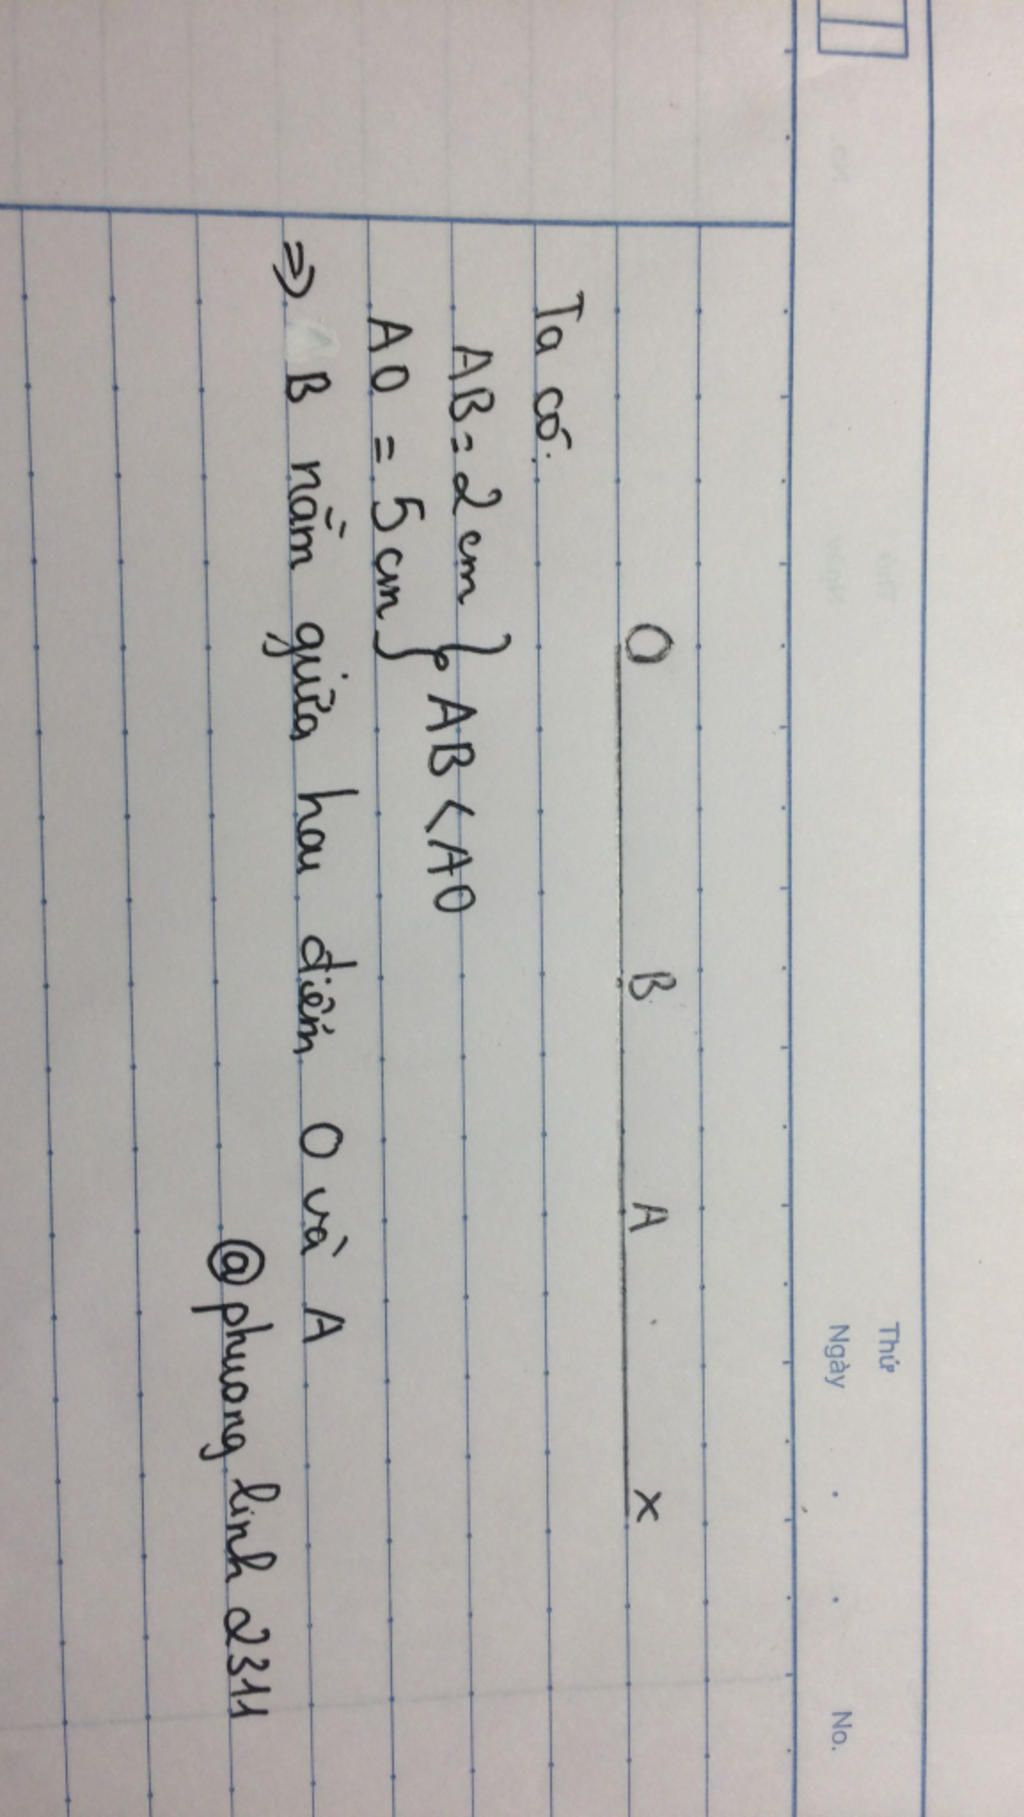 Thứ
Ngày
No.
O B A x
Ta có:
AB = 2 cm
AO = 5 cm } AB < AO
=> B nằm giữa hai điểm O và A
@phuong linh 2311